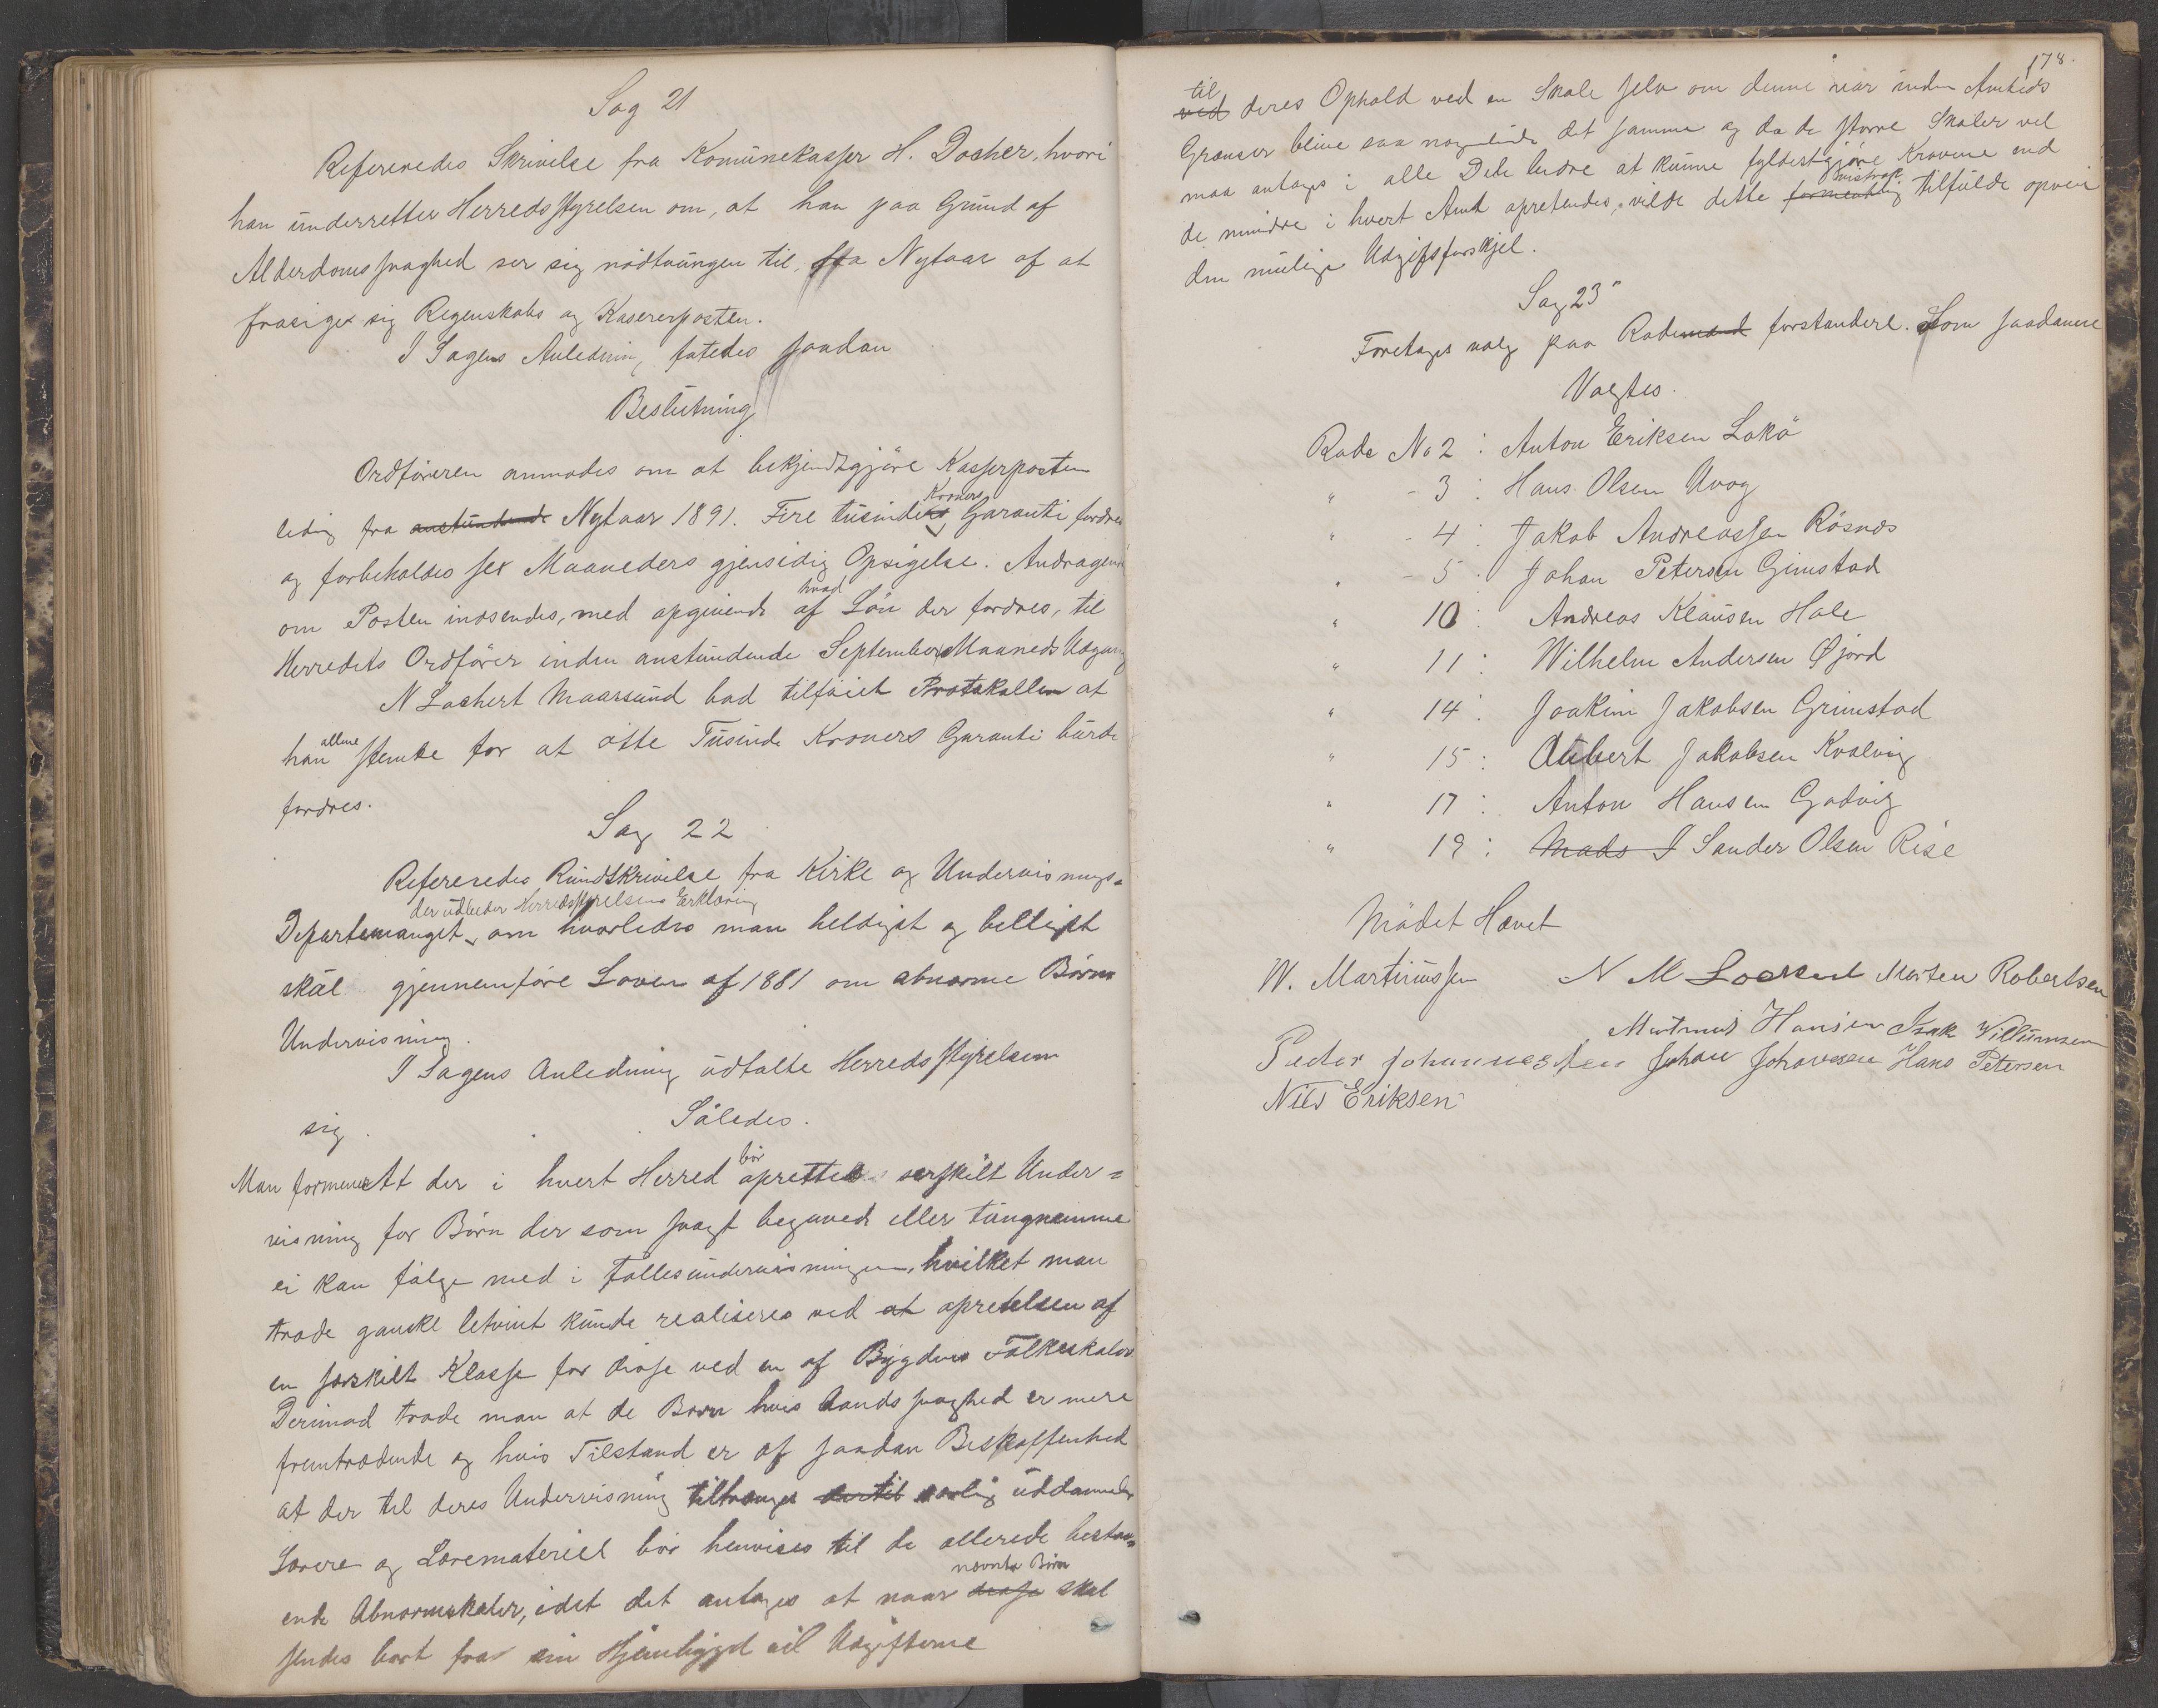 Sag 21
Refereredes Skrivelse fra Komünekasser H. Docher, hvori
han ünderretter Herredsstyrelsen om, at han paa Grund af
Alderdomssvaghed ser sig nödtvüngen til, fra Nytaar af at
frasiger sig Regenskabs og Kasererposten.
I Sagens Anlednin, fatedes saadan
Beslutning
Ordföreren anmodes om at bekjendtgjöre Kasserposten
ledig fra anstundende Nytaar 1891. Fire tüsinde Kroners Garanti fordres
og forbeholdes sex Maaneders gjensidig Opsigelse. Andragende
om Posten indsendes, med opgivende af hvad Lön der fordres, til
Herredets Ordförer inden anstundende September Maaneds Udgang
N Lochert Maarsund bad tilföiet Protokollen at
han allene stemte for at otte Tüsinde Kroners Garanti bürde
fordres.
Sag 22
Refereredes Rundskrivelse fra Kirke og Undervisnings-
der üdbeder Herredsstyrelsens Erklæring
Departemanget, om hvorledes man heldigst og belligst
skal gjennemföre Loven af 1881 om abnorme Börns
Undervisning.
I Sagens Anledning üdtalte Herredsstyrelsen
sig Således.
Man formener At der i hvert Herred bör oprettes serskilt Under=
visning for Börn der som svagt begavede eller tungnemme
ei kan fölge med i Fællesündervisningen, hvilket man
trode ganske letvint kunde realiseres ved at opretelsen af
en særskilt Klasse for disse ved en af Bygdens Folkeskoler
Derimod trode man at de Børn hvis Aandssvaghed er mere
fremtrædende og hvis Tilstand er af saadan Beskaffenhed
at der til deres Undervisning tiltrænges dertil særlig üddannede
Lærere og Læremateriel bör henvises til de allerede bestaa-
ende Abnormskoler, idet det antages at naar disse nævnte Börn skal
sendes bort fra sin Hjembygd vil Udgifterne
178.
til
ved deres Ophold ved en Skole selv om denne var inden Amtets
Grænser blive saa nogenlunde det samme og da de större Skoler vel
maa antages i alle Dele bedre at kunne fyldestgjöre Kravene end
de mindre i hvert Amt opretendes, vilde dette formentlig tilfulde opveie
den mulige Udgifsforskjel.
Sag 23"
Foretages valg paa Rodemand forstandere. Som saadanne
Valgtes.
Rode No 2 : Anton Eriksen Lokö
" - 3 : Hans Olsen Uvog
" - 4 : Jakob Andreassen Rösnes
" - 5 : Johan Petersen Gimstad
" 10 : Andreas Klausen Hole
" 11 : Wilhelm Andersen Øjord
" 14 : Joakim Jakobsen Grimstad
" 15 : Aubert Jakobsen Kvalvig
" 17 : Anton Hansen Godvig
" 19 : Mads J Sander Olsen Rise
Mödet Hævet
W. Martinussen N M Lockert Morten Robertsen
Martinus Hansen Isak Villumsen
Peder Johannessen Johan Johannesen Hans Petersen
Nils Eriksen